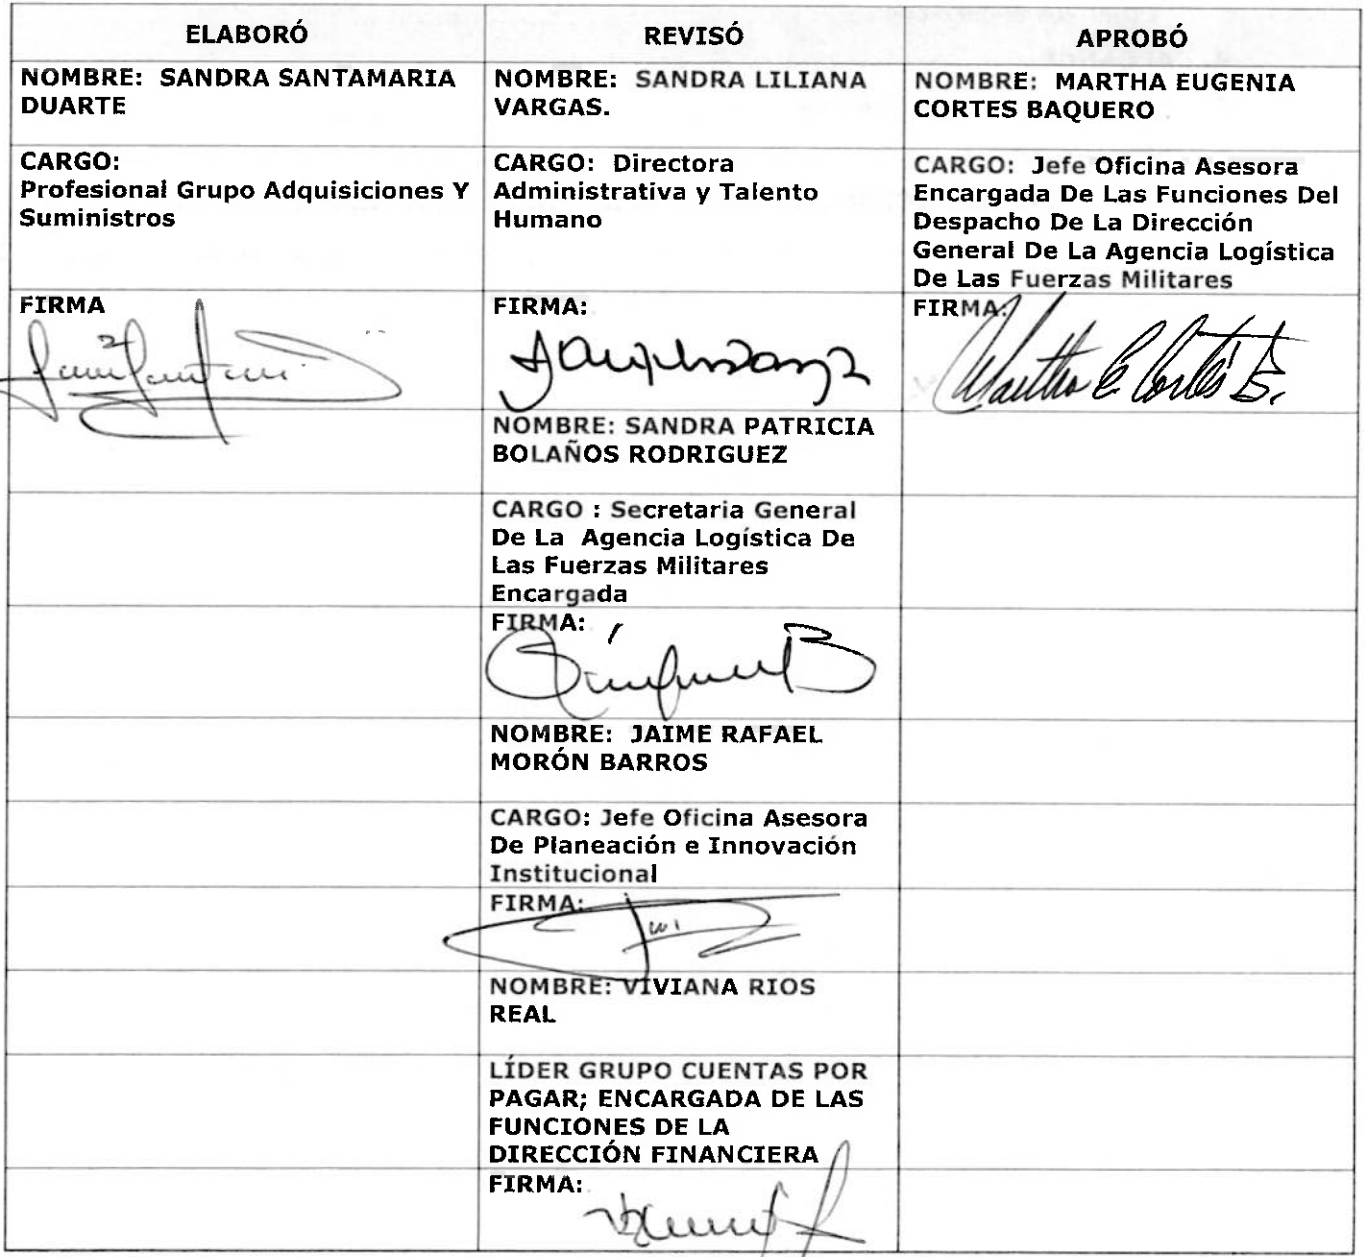 ELABORÓ
REVISÓ
APROBÓ
NOMBRE: SANDRA SANTAMARIA
DUARTE
NOMBRE: SANDRA LILIANA
VARGAS.
NOMBRE: MARTHA EUGENIA
CORTES BAQUERO
CARGO:
Profesional Grupo Adquisiciones Y
Suministros
CARGO: Directora
Administrativa y Talento
Humano
CARGO: Jefe Oficina Asesora
Encargada De Las Funciones Del
Despacho De La Dirección
General De La Agencia Logística
De Las Fuerzas Militares
FIRMA
FIRMA:
FIRMA:
Martha E Cortés B.
NOMBRE: SANDRA PATRICIA
BOLAÑOS RODRIGUEZ
CARGO : Secretaria General
De La Agencia Logística De
Las Fuerzas Militares
Encargada
FIRMA:
NOMBRE: JAIME RAFAEL
MORÓN BARROS
CARGO: Jefe Oficina Asesora
De Planeación e Innovación
Institucional
FIRMA:
NOMBRE: VIVIANA RIOS
REAL
LÍDER GRUPO CUENTAS POR
PAGAR; ENCARGADA DE LAS
FUNCIONES DE LA
DIRECCIÓN FINANCIERA
FIRMA: